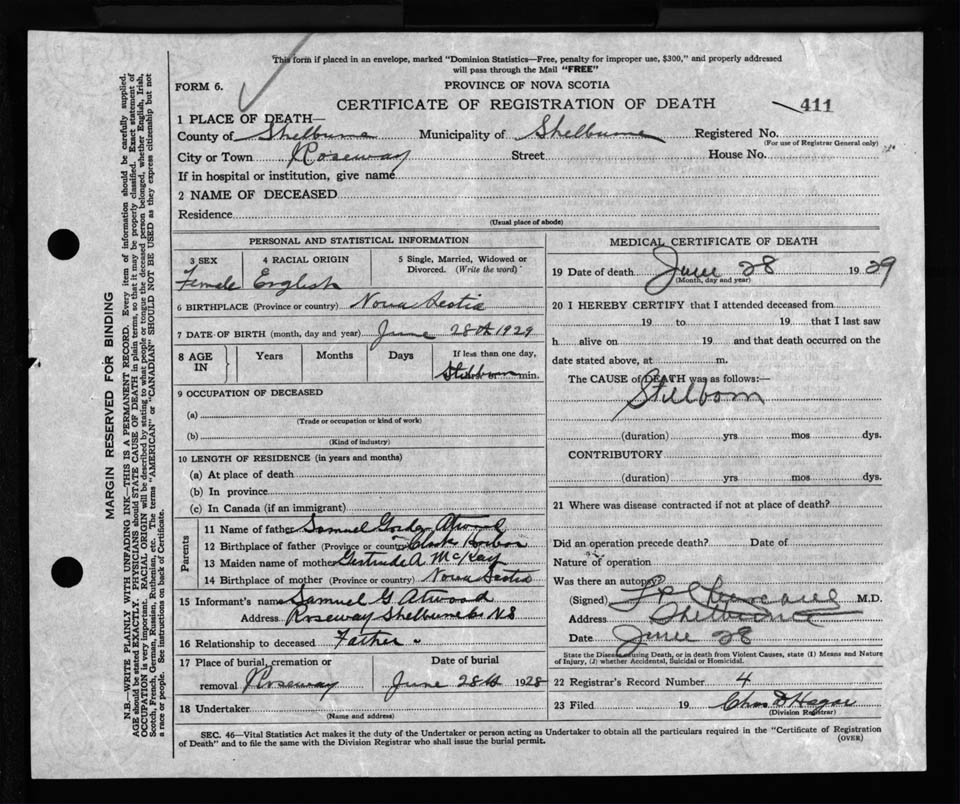 This form if placed in an envelope, marked "Dominion Statistics—Free, penalty for improper use, $300," and properly addressed
will pass through the Mail "FREE"
FORM 6.
PROVINCE OF NOVA SCOTIA
CERTIFICATE OF REGISTRATION OF DEATH
411
1 PLACE OF DEATH—
County of Shelburne Municipality of Shelburne Registered No.
(For use of Registrar General only)
City or Town Roseway Street House No.
If in hospital or institution, give name
2 NAME OF DECEASED
Residence
(Usual place of abode)
PERSONAL AND STATISTICAL INFORMATION
3 SEX 4 RACIAL ORIGIN 5 Single, Married, Widowed or
Divorced. (Write the word)
Female English
6 BIRTHPLACE (Province or country) Nova Scotia
7 DATE OF BIRTH (month, day and year) June 28th 1929
8 AGE IN Years Months Days If less than one day,
Stillborn min.
9 OCCUPATION OF DECEASED
(a)
(Trade or occupation or kind of work)
(b)
(Kind of industry)
10 LENGTH OF RESIDENCE (in years and months)
(a) At place of death
(b) In province
(c) In Canada (if an immigrant)
Parents
11 Name of father Samuel Gordon Atwood
12 Birthplace of father (Province or country) Clarks Harbor
13 Maiden name of mother Gertrude A McKay
14 Birthplace of mother (Province or country) Nova Scotia
15 Informant's name Samuel G. Atwood
Address Roseway Shelburne Co NS
16 Relationship to deceased Father
17 Place of burial, cremation or Date of burial
removal Roseway June 28th 1928
18 Undertaker
(Name and address)
MEDICAL CERTIFICATE OF DEATH
19 Date of death June 28 1929
(Month, day and year)
20 I HEREBY CERTIFY that I attended deceased from
19 to 19 that I last saw
h alive on 19 and that death occurred on the
date stated above, at m.
The CAUSE of DEATH was as follows:—
Stillborn
(duration) yrs mos dys.
CONTRIBUTORY
(duration) yrs mos dys.
21 Where was disease contracted if not at place of death?
Did an operation precede death? Date of
Nature of operation
Was there an autopsy?
(Signed) M.D.
Address Shelburne
Date June 28
State the Disease causing Death, or in death from Violent Causes, state (1) Means and Nature
of Injury, (2) whether Accidental, Suicidal or Homicidal.
22 Registrar's Record Number 4
23 Filed 19 Chas D Hagar
(Division Registrar)
SEC. 46—Vital Statistics Act makes it the duty of the Undertaker or person acting as Undertaker to obtain all the particulars required in the "Certificate of Registration
of Death" and to file the same with the Division Registrar who shall issue the burial permit.
(OVER)
MARGIN RESERVED FOR BINDING
N.B.—WRITE PLAINLY WITH UNFADING INK—THIS IS A PERMANENT RECORD. Every item of information should be carefully supplied.
AGE should be stated EXACTLY. PHYSICIANS should STATE CAUSE OF DEATH in plain terms, so that it may be properly classified. Exact statement of
OCCUPATION is very important. RACIAL ORIGIN will be described by stating to what people or tongue the deceased person belonged, whether English, Irish,
Scotch, French, German, Russian, Ruthenian, etc. The terms "AMERICAN" or "CANADIAN" SHOULD NOT BE USED as they express citizenship but not
a race or people. See instructions on back of Certificate.